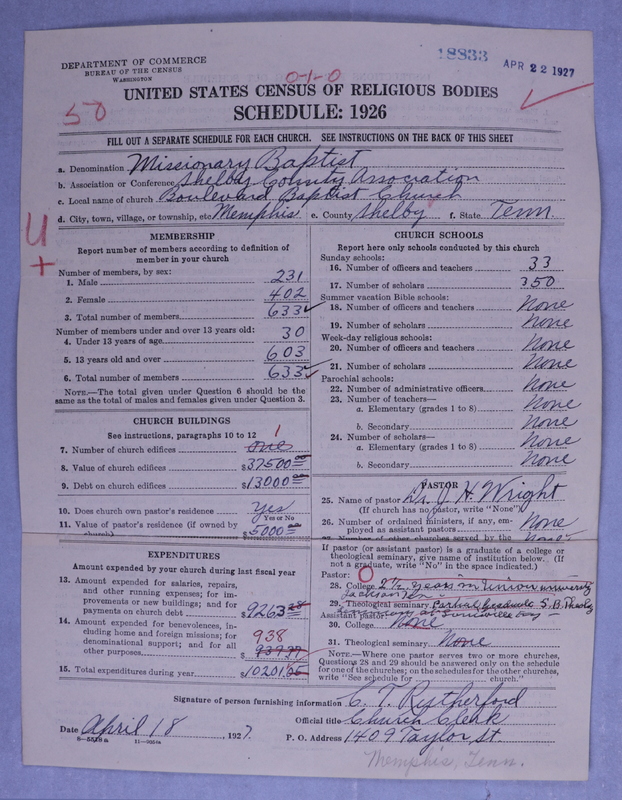 DEPARTMENT OF COMMERCE
BUREAU OF THE CENSUS
WASHINGTON
18833
APR 22 1927
0-1-0
50
UNITED STATES CENSUS OF RELIGIOUS BODIES
SCHEDULE: 1926
FILL OUT A SEPARATE SCHEDULE FOR EACH CHURCH. SEE INSTRUCTIONS ON THE BACK OF THIS SHEET
a. Denomination Missionary Baptist
b. Association or Conference Shelby County Association
c. Local name of church Boulevard Baptist Church
d. City, town, village, or township, etc Memphis e. County Shelby f. State Tenn.
U
+
MEMBERSHIP
Report number of members according to definition of
member in your church
Number of members, by sex:
1. Male 231
2. Female 402
3. Total number of members 633
Number of members under and over 13 years old:
4. Under 13 years of age 30
5. 13 years old and over 603
6. Total number of members 633
NOTE.—The total given under Question 6 should be
the same as the total of males and females given under Question 3.
CHURCH BUILDINGS
See instructions, paragraphs 10 to 12
7. Number of church edifices one 1
8. Value of church edifices $37500.00
9. Debt on church edifices $13000.00
10. Does church own pastor's residence Yes
Yes or No
11. Value of pastor's residence (if owned by
church) $5000.00
EXPENDITURES
Amount expended by your church during last fiscal year
13. Amount expended for salaries, repairs,
and other running expenses; for im-
provements or new buildings; and for
payments on church debt $9263
14. Amount expended for benevolences, in-
cluding home and foreign missions; for
denominational support; and for all
other purposes $ 938
15. Total expenditures during year $10201
CHURCH SCHOOLS
Report here only schools conducted by this church
Sunday schools:
16. Number of officers and teachers 33
17. Number of scholars 350
Summer vacation Bible schools:
18. Number of officers and teachers None
19. Number of scholars None
Week-day religious schools:
20. Number of officers and teachers None
21. Number of scholars None
Parochial schools:
22. Number of administrative officers None
23. Number of teachers—
a. Elementary (grades 1 to 8) None
b. Secondary None
24. Number of scholars—
a. Elementary (grades 1 to 8) None
b. Secondary None
PASTOR
25. Name of pastor H. Wright
(If church has no pastor, write "None")
26. Number of ordained ministers, if any, em-
ployed as assistant pastors None
27. Number of other churches served by the None
If pastor (or assistant pastor) is a graduate of a college or
theological seminary, give name of institution below. (If
not a graduate, write "No" in the space indicated.)
Pastor: 0
28. College 2 1/2 years in Union University
Jackson Ten.
29. Theological seminary Partial Graduate S.B. Theolog
Seminary at Louisville Ky
Assistant pastor:
30. College None
31. Theological seminary None
NOTE.—Where one pastor serves two or more churches,
Questions 28 and 29 should be answered only on the schedule
for one of the churches; on the schedules for the other churches,
write "See schedule for church."
Signature of person furnishing information C. T. Rutherford
Official title Church Clerk
Date April 18, 1927. P. O. Address 1409 Taylor st.
8-5518 a
Memphis, Tenn.